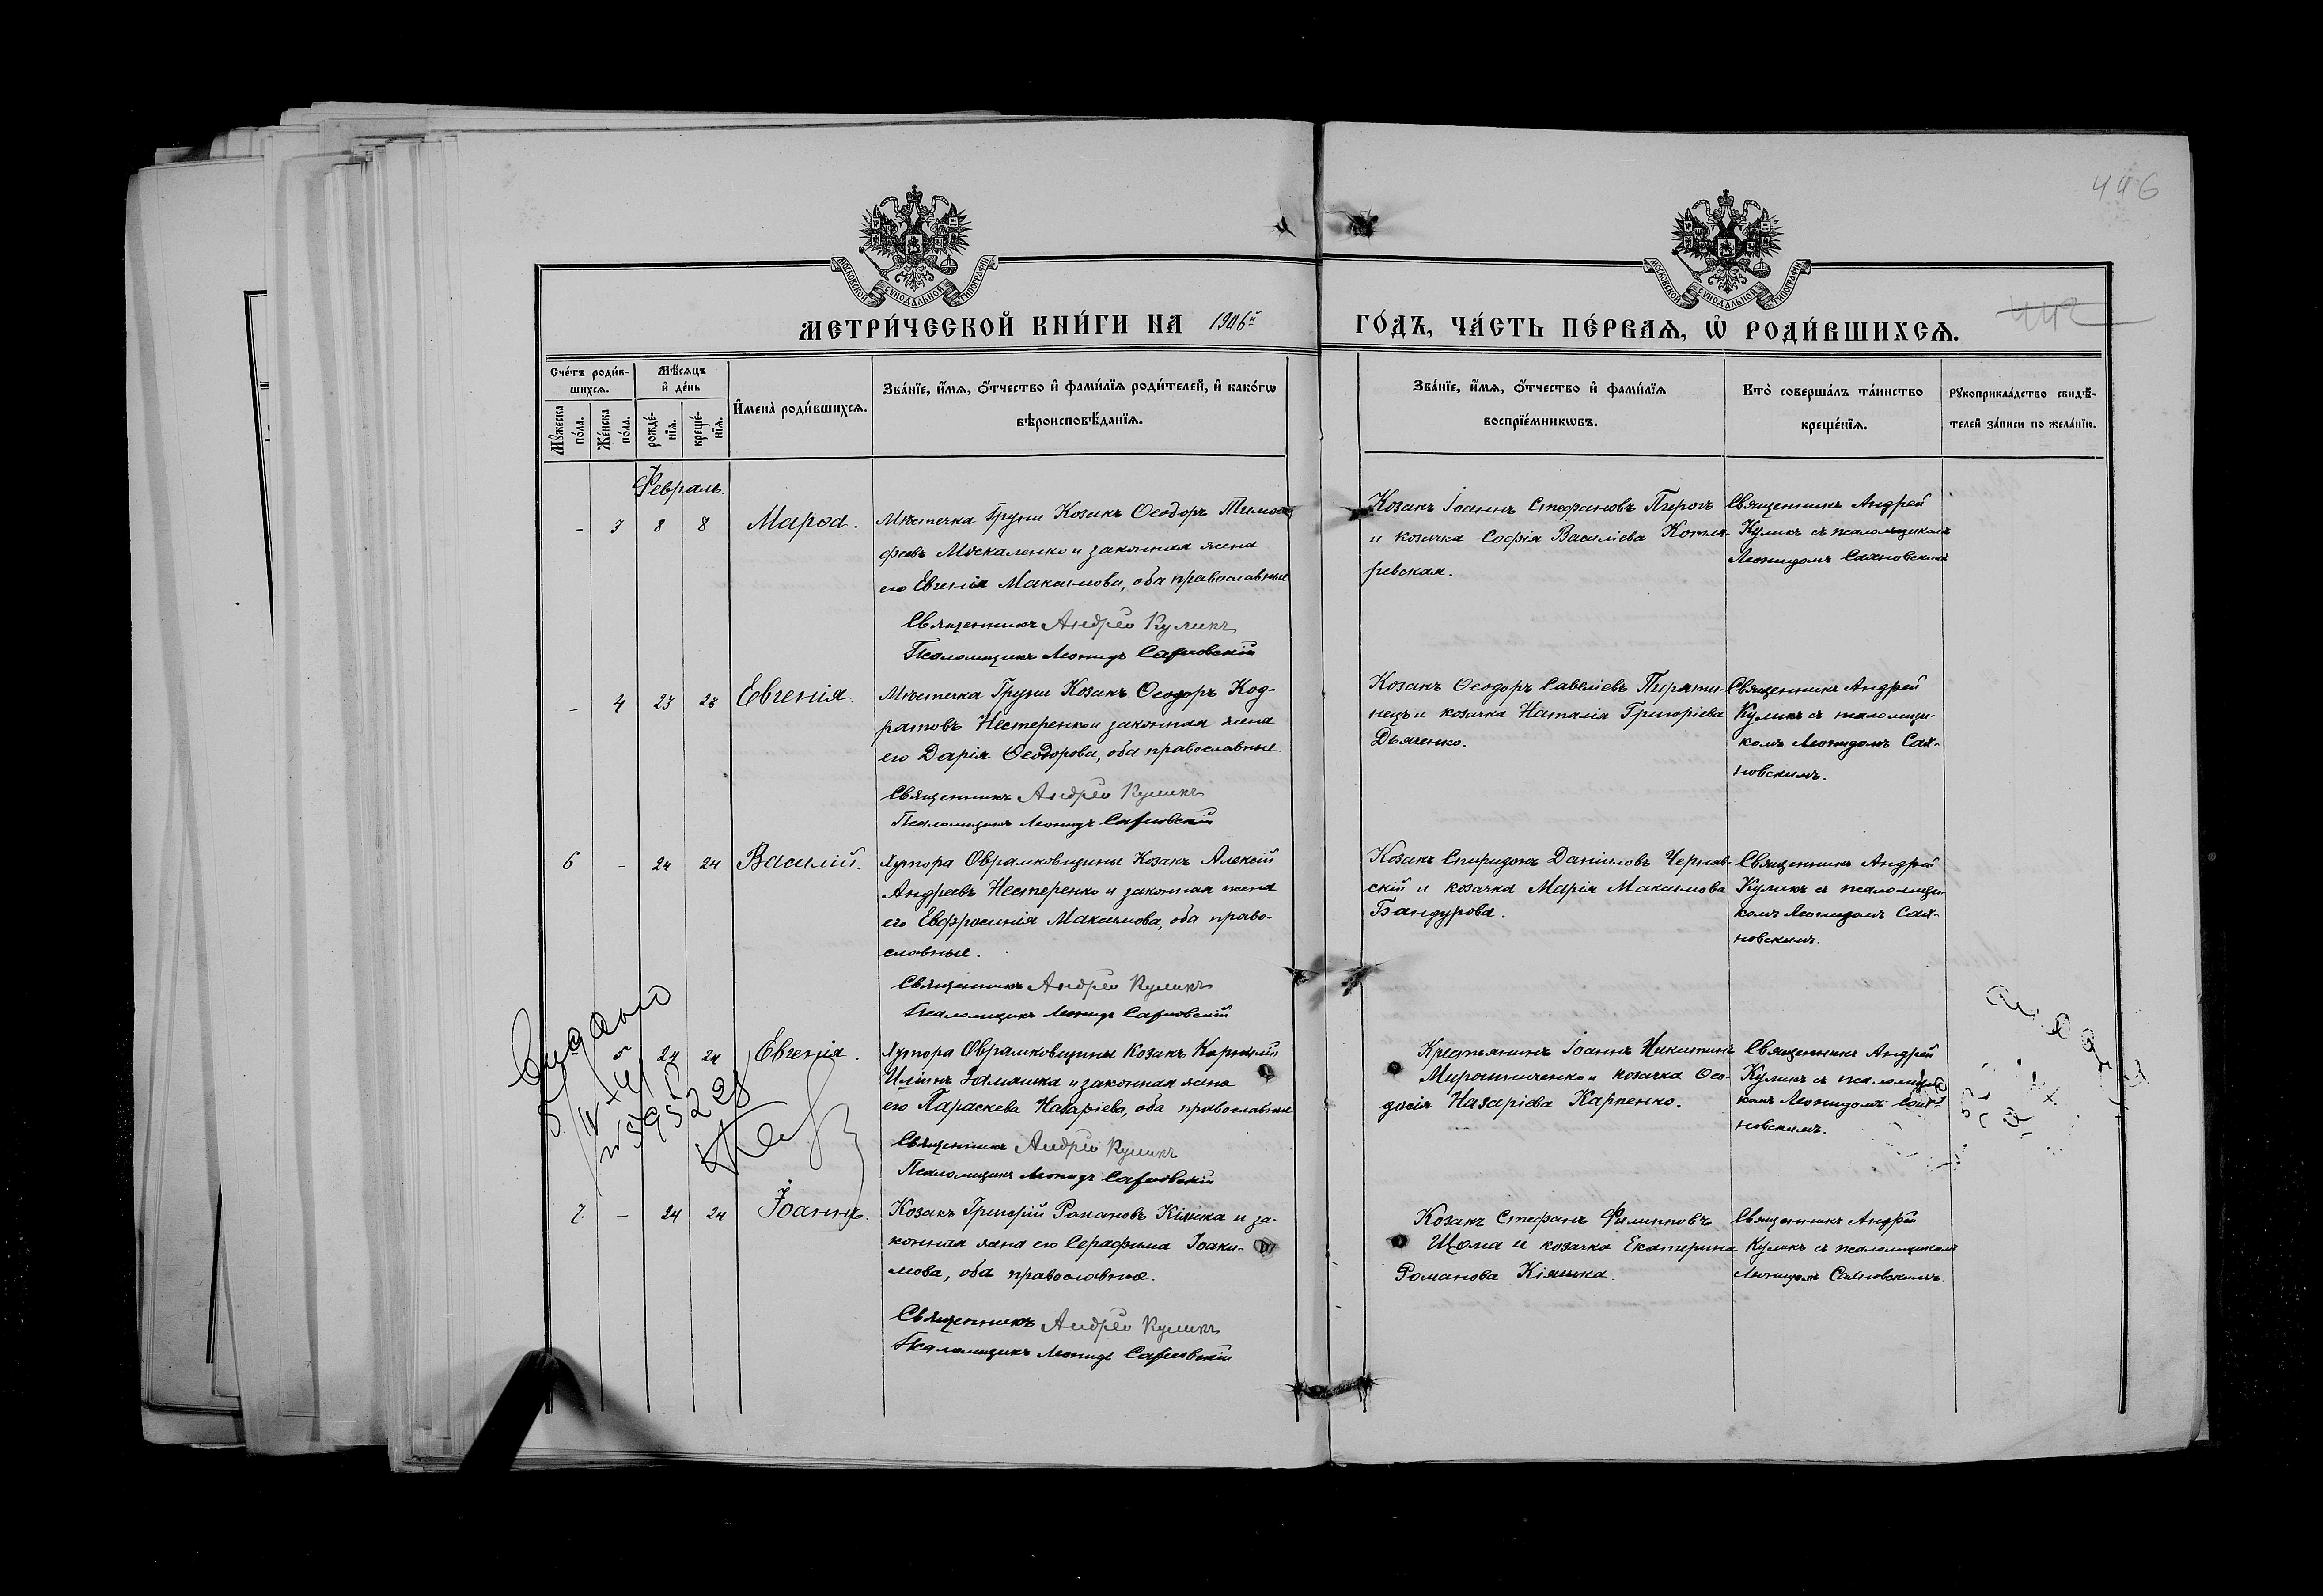 446
МОСКОВСКОЙ СѴНОДАЛЬНОЙ ТИПОГРАФІИ
МОСКОВСКОЙ СѴНОДАЛЬНОЙ ТИПОГРАФІИ
МЕТРИ́ЧЕСКОЙ КНИ́ГИ НА 1906й ГО́ДЪ, ЧА́СТЬ ПЕ́РВАѦ, Ѿ РОДИ́ВШИХСѦ.
Сче́тъ роди́в-
шихсѧ.
Мꙋ́жеска по́ла.
Же́нска по́ла.
Мѣ́сѧцъ
и҆ де́нь
рожде́-
нїѧ.
креще́-
нїѧ.
И҆мена̀ роди́вшихсѧ.
Зва́нїе, и҆́мѧ, ѻ҆́тчество и҆ фами́лїѧ роди́телей, и҆ како́гѡ
вѣроисповѣ́данїѧ.
Зва́нїе, и҆́мѧ, ѻ҆́тчество и҆ фами́лїѧ
воспрїе́мникѡвъ.
Кто̀ соверша́лъ та́инство
креще́нїѧ.
Рꙋкоприкла́дство свидѣ́-
телей за́писи по жела́нїю.
Февраль.
- 3 8 8 Марѳа.
Мѣстечка Груни Козакъ Ѳеодоръ Тимоѳ
феевъ Москаленко и законная жена
его Евгенія Максимова, оба православные
Священникъ Андрей Куликъ
Псаломщикъ Леонидъ Сахновскій
Козакъ Іоаннъ Стефановъ Пирогъ
и козачка Софія Василіева Котля-
ревская.
Священникъ Андрей
Куликъ съ псаломщикомъ
Леонидомъ Сахновскимъ
- 4 23 23 Евгенія.
Мѣстечка Груни Козакъ Ѳеодоръ Код-
ратовъ Нестеренко и законная жена
его Дарія Ѳеодорова, оба православные.
Священникъ Андрей Куликъ
Псаломщикъ Леонидъ Сахновскій
Козакъ Ѳеодоръ Савеліевъ Пиряти-
нецъ и козачка Наталія Григоріева
Дьяченко.
Священникъ Андрей
Куликъ съ псаломщи-
комъ Леонидомъ Сах-
новскимъ.
6 - 24 24 Василій.
Хутора Овраمковщины Козакъ Алексій
Андреевъ Нестеренко и законная жена
его Евфросинія Максимова, оба право-
славные.
Священникъ Андрей Куликъ
Псаломщикъ Леонидъ Сахновскій
Козакъ Спиридонъ Даніиловъ Черняв-
скій и козачка Марія Максимова
Бандурова.
Священникъ Андрей
Куликъ съ псаломщи-
комъ Леонидомъ Сах-
новскимъ.
24 24 Евгенія.
Хутора Оврамковщины Козакъ Корнилій
Иліинъ Замашка и законная жена
его Параскева Назаріева, оба православные
Священникъ Андрей Куликъ
Псаломщикъ Леонидъ Сахновскій
Крестьянинъ Іоаннъ Никитинъ
Мирошниченко и козачка Ѳео-
досія Назаріева Карпенко.
Священникъ Андрей
Куликъ съ псаломщи-
комъ Леонидомъ Сах-
новскимъ.
7. - 24 24 Іоаннъ.
Козакъ Григорій Романовъ Кіяшка и за-
конная жена его Серафима Іоаки-
мова, оба православные.
Священникъ Андрей Куликъ
Псаломщикъ Леонидъ Сахновскій
Козакъ Стефанъ Филипповъ
Щома и козачка Екатерина
Романова Кіяшка.
Священникъ Андрей
Куликъ съ псаломщикомъ
Леонидомъ Сахновскимъ.